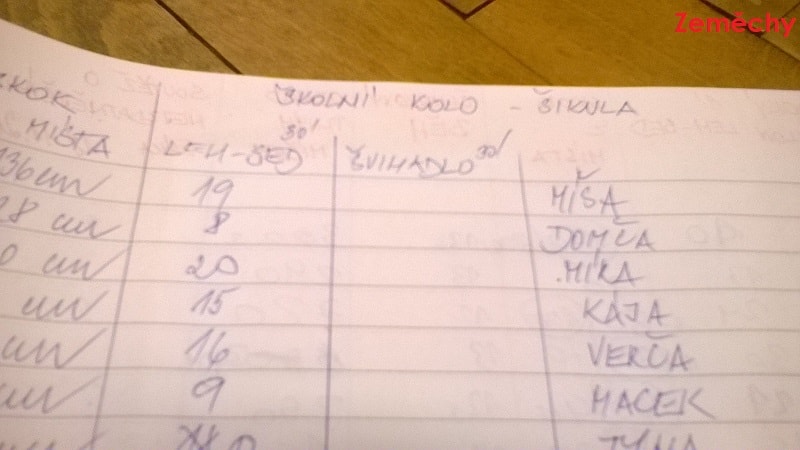 Zeměchy
ŠKOLNÍ KOLO - ŠIKULA
SKOK Z
MÍSTA LEH-SED 30' ŠVIHADLO 30'
136cm 19 MÍŠA
28 cm 8 DOMČA
0 cm 20 MÍRA
cm 15 KÁJA
cm 16 VERČA
cm 9 MACEK
TÝNA